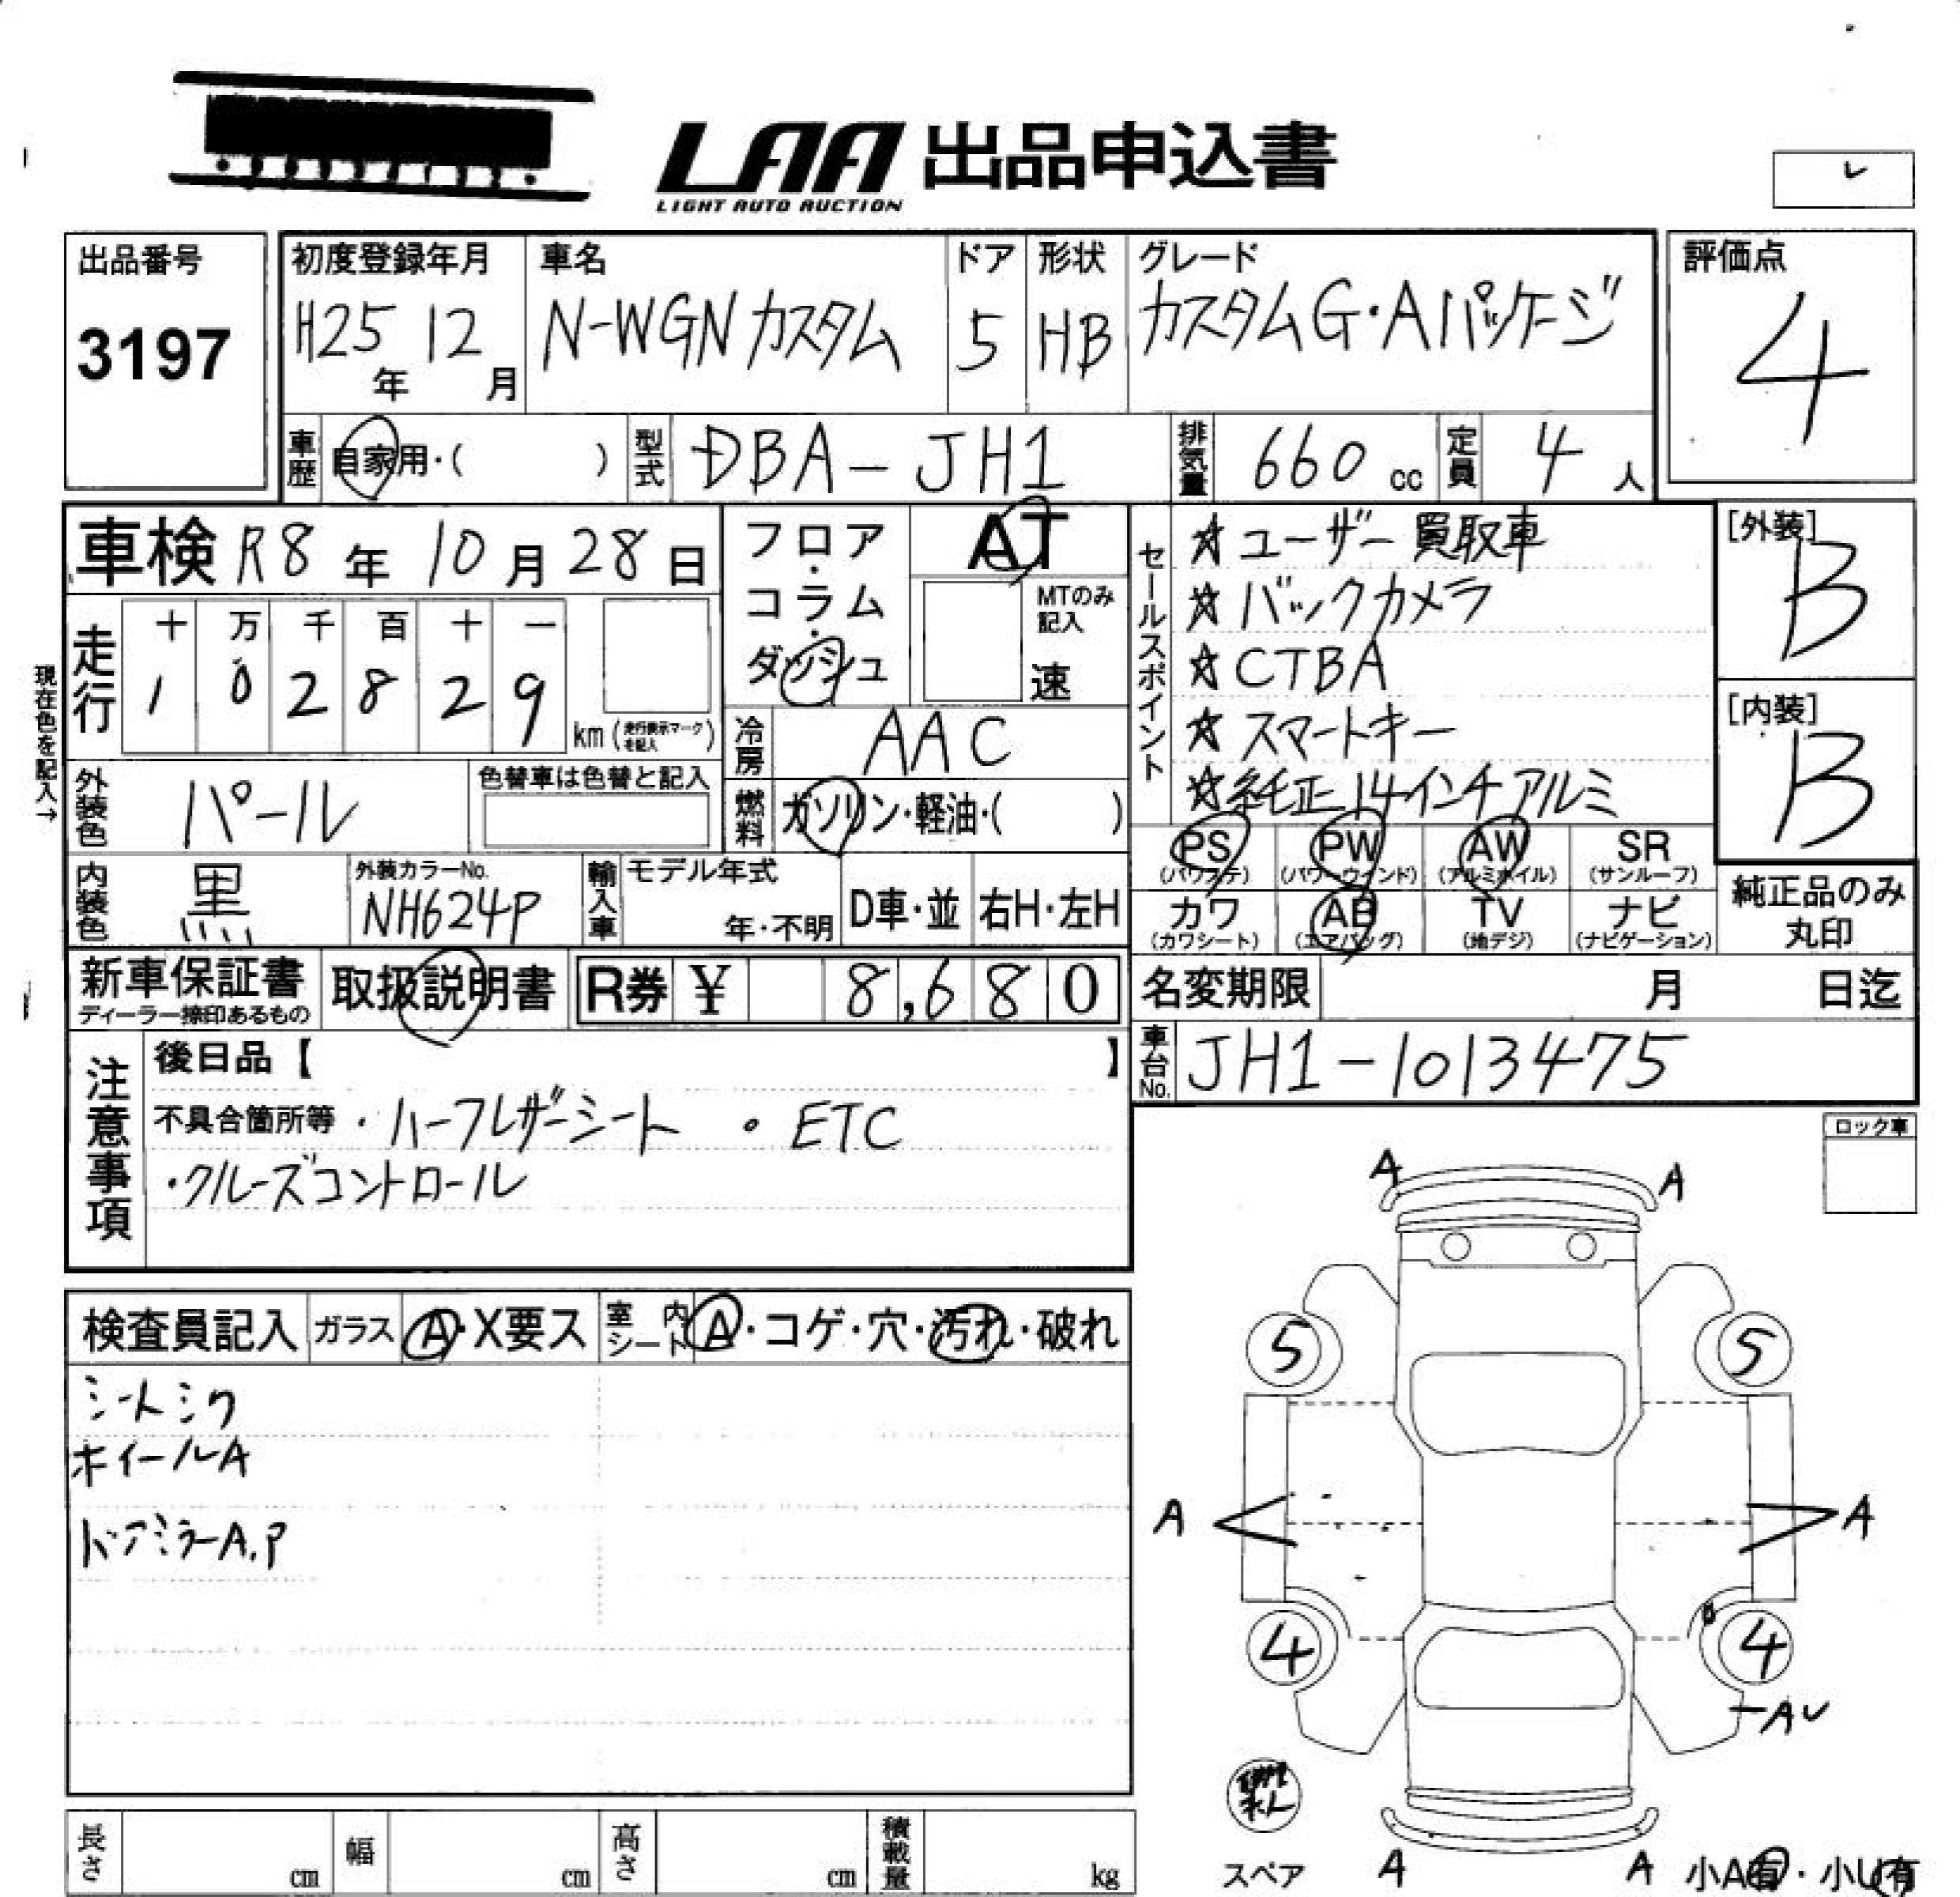 LAA 出品申込書
LIGHT AUTO AUCTION
レ
出品番号
3197
初度登録年月
H25年 12月
車名
N-WGN カスタム
ドア
5
形状
HB
グレード
カスタムG・Aパッケージ
評価点
4
車歴 自家用・( )
型式 DBA-JH1
排気量 660 cc
定員 4 人
車検 R8年 10月 28日
フロア・コラム・ダッシュ
AT
MTのみ記入
速
セールスポイント
☆ユーザー買取車
☆バックカメラ
☆CTBA
☆スマートキー
☆純正14インチアルミ
[外装]
B
[内装]
B
現在色を記入→
走行
十 万 千 百 十 一
1 0 2 8 2 9
km (走行表示マークを記入)
冷房 AAC
外装色 パール
色替車は色替と記入
燃料 ガソリン・軽油・( )
PS (パワステ) PW (パワーウインド) AW (アルミホイル) SR (サンルーフ)
カワ (カワシート) AB (エアバッグ) TV (地デジ) ナビ (ナビゲーション)
純正品のみ丸印
内装色 黒
外装カラーNo. NH624P
輸入車 モデル年式
年・不明
D車・並
右H・左H
新車保証書
ディーラー捺印あるもの
取扱説明書
R券 ¥ 8,680
名変期限 月 日迄
車台No. JH1-1013475
注意事項
後日品【 】
不具合箇所等 ・ハーフレザーシート ・ETC
・クルーズコントロール
ロック車
検査員記入 ガラス A・X要ス 室内シート A・コゲ・穴・汚れ・破れ
シートシワ
ホイールA
ドアミラーA.P
A A
5 5
A A
4 4
AU
スペア
A A
小A有・小U有
長さ cm 幅 cm 高さ cm 積載量 kg